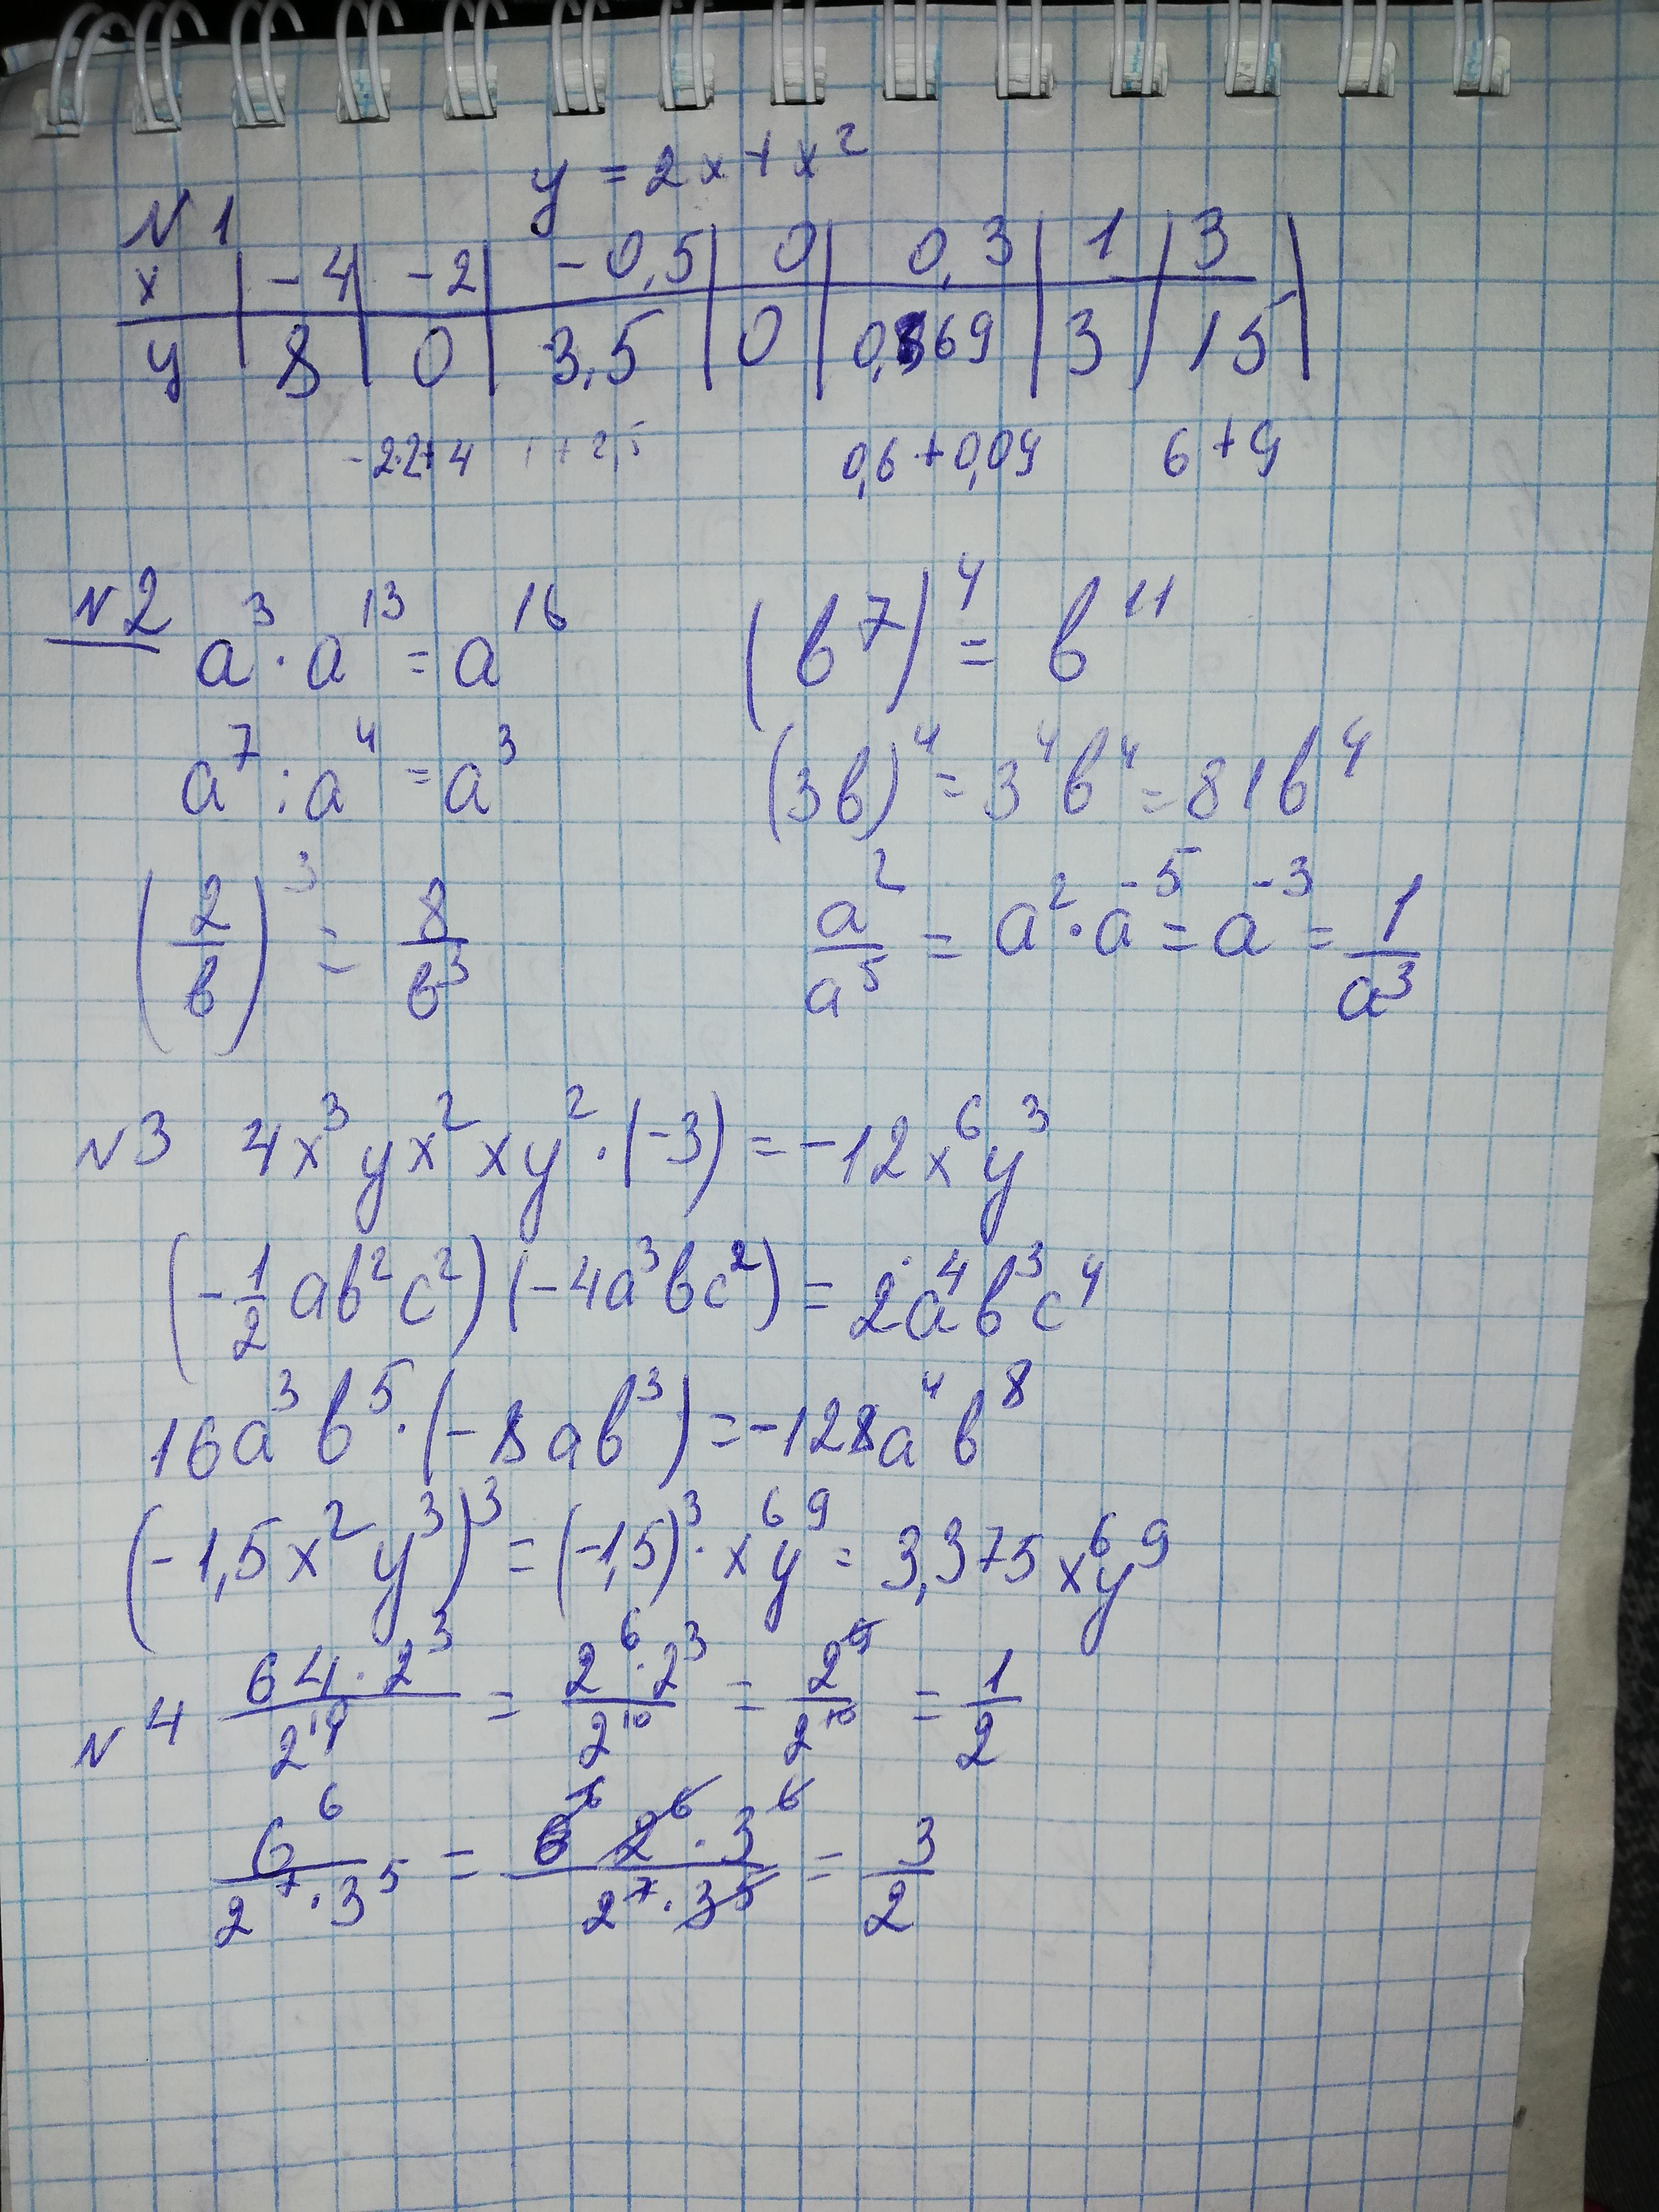 y = 2x + x²
№1
x | -4 | -2 | -0,5 | 0 | 0,3 | 1 | 3 |
y | 8 | 0 | 3,5 | 0 | 0,69 | 3 | 15 |
-2·2+4 1+2,5 0,6+0,09 6+9
№2 a³·a¹³ = a¹⁶ (b⁷)⁴ = b¹¹
a⁷:a⁴ = a³ (3b)⁴ = 3⁴b⁴ = 81b⁴
(2/b)³ = 8/b³ a²/a⁵ = a²·a⁻⁵ = a⁻³ = 1/a³
№3 4x³yx²xy²·(-3) = -12x⁶y³
(-1/2 ab²c²)(-4a³bc²) = 2a⁴b³c⁴
16a³b⁵·(-8ab³) = -128a⁴b⁸
(-1,5x²y³)³ = (-1,5)³·x⁶y⁹ = 3,375x⁶y⁹
№4 64·2³/2¹⁰ = 2⁶·2³/2¹⁰ = 2⁹/2¹⁰ = 1/2
6⁶/2⁷·3⁵ = 2⁶·3⁶/2⁷·3⁵ = 3/2